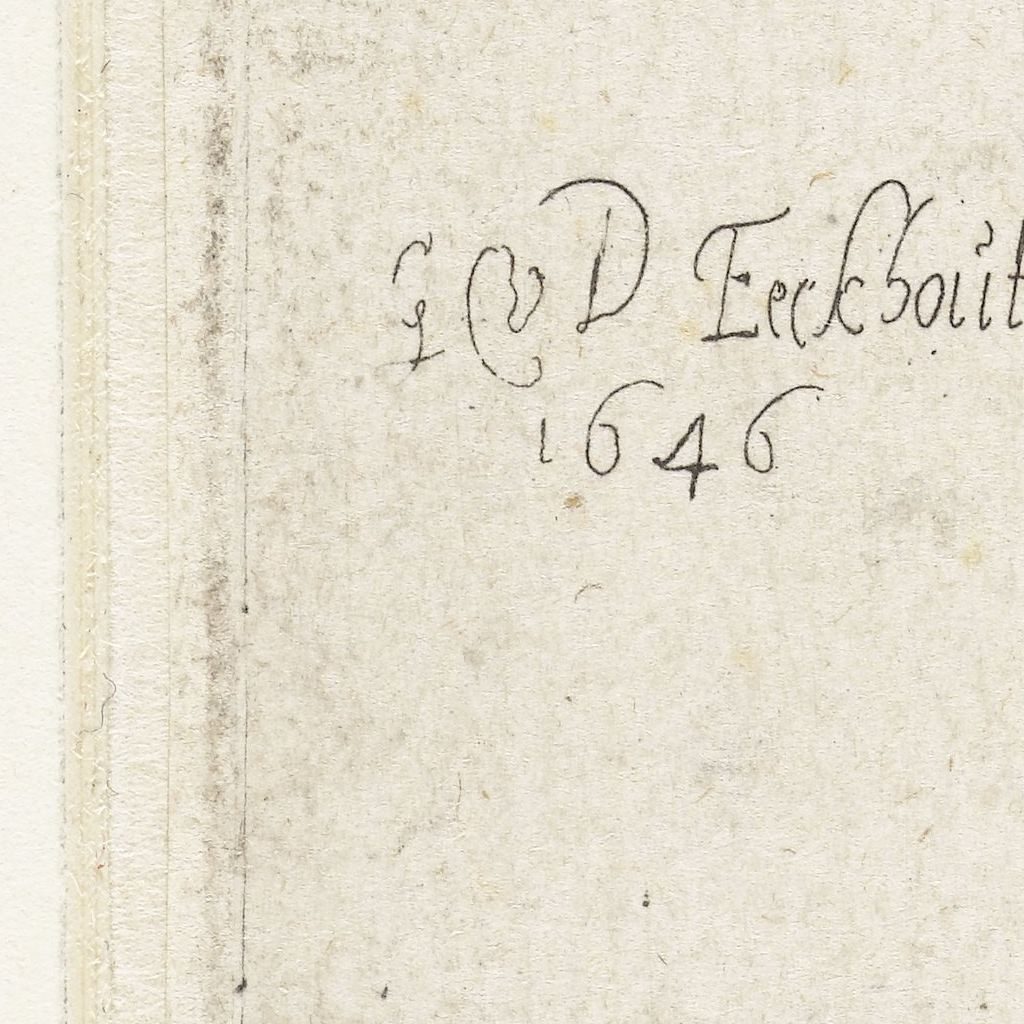 G V D Eeckhoŭt
1646